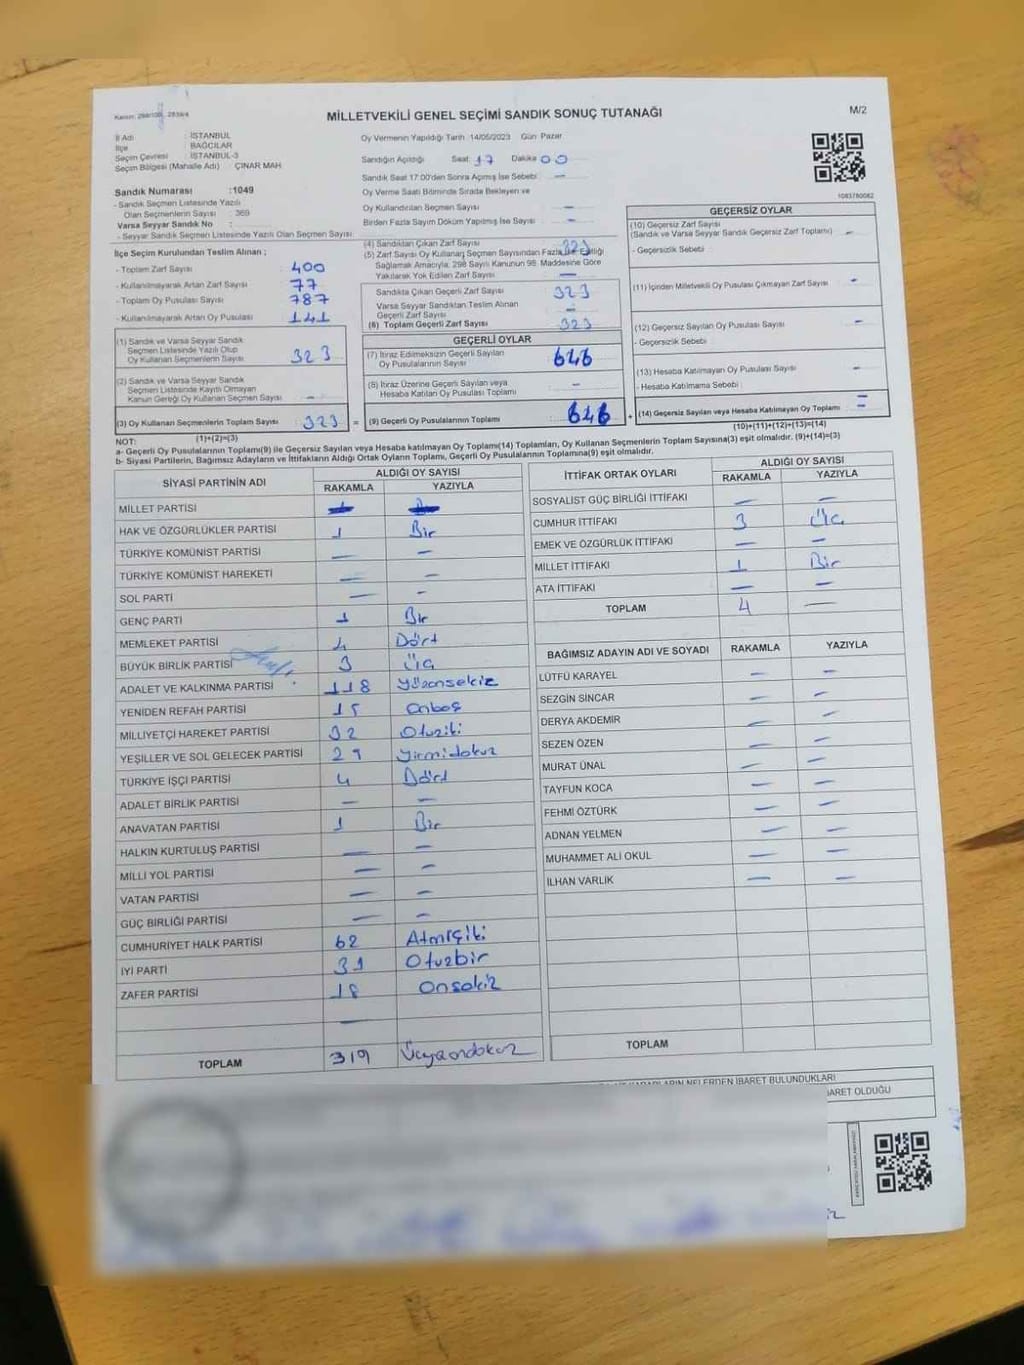 Kanun: 298/105, 2839/4
MİLLETVEKİLİ GENEL SEÇİMİ SANDIK SONUÇ TUTANAĞI
M/2
İl Adı : İSTANBUL
İlçe : BAĞCILAR
Seçim Çevresi : İSTANBUL-3
Seçim Bölgesi (Mahalle Adı) : ÇINAR MAH.
Oy Vermenin Yapıldığı Tarih 14/05/2023 Gün Pazar
Sandığın Açıldığı Saat 17 Dakika 00
Sandık Saat 17:00'den Sonra Açılmış İse Sebebi —
Oy Verme Saati Bitiminde Sırada Bekleyen ve
Oy Kullandırılan Seçmen Sayısı —
Birden Fazla Sayım Döküm Yapılmış İse Sayısı —
Sandık Numarası : 1049
- Sandık Seçmen Listesinde Yazılı
Olan Seçmenlerin Sayısı : 369
Varsa Seyyar Sandık No :
- Seyyar Sandık Seçmen Listesinde Yazılı Olan Seçmen Sayısı
İlçe Seçim Kurulundan Teslim Alınan ;
- Toplam Zarf Sayısı 400
- Kullanılmayarak Artan Zarf Sayısı 77
- Toplam Oy Pusulası Sayısı 787
- Kullanılmayarak Artan Oy Pusulası 141
(1) Sandık ve Varsa Seyyar Sandık
Seçmen Listesinde Yazılı Olup
Oy Kullanan Seçmenlerin Sayısı 323
(2) Sandık ve Varsa Seyyar Sandık
Seçmen Listesinde Kayıtlı Olmayan
Kanun Gereği Oy Kullanan Seçmen Sayısı —
(3) Oy Kullanan Seçmenlerin Toplam Sayısı 323
(1)+(2)=(3)
(4) Sandıktan Çıkan Zarf Sayısı 323
(5) Zarf Sayısı Oy Kullanan Seçmen Sayısından Fazla İse Eşitliği
Sağlamak Amacıyla, 298 Sayılı Kanunun 98. Maddesine Göre
Yakılarak Yok Edilen Zarf Sayısı —
Sandıkta Çıkan Geçerli Zarf Sayısı 323
Varsa Seyyar Sandıktan Teslim Alınan
Geçerli Zarf Sayısı —
(6) Toplam Geçerli Zarf Sayısı 323
GEÇERLİ OYLAR
(7) İtiraz Edilmeksizin Geçerli Sayılan
Oy Pusulalarının Sayısı 646
(8) İtiraz Üzerine Geçerli Sayılan veya
Hesaba Katılan Oy Pusulası Toplamı —
= (9) Geçerli Oy Pusulalarının Toplamı 646
1083780082
GEÇERSİZ OYLAR
(10) Geçersiz Zarf Sayısı
(Sandık ve Varsa Seyyar Sandık Geçersiz Zarf Toplamı) —
- Geçersizlik Sebebi :
(11) İçinden Milletvekili Oy Pusulası Çıkmayan Zarf Sayısı —
(12) Geçersiz Sayılan Oy Pusulası Sayısı —
- Geçersizlik Sebebi
(13) Hesaba Katılmayan Oy Pusulası Sayısı —
- Hesaba Katılmama Sebebi :
+ (14) Geçersiz Sayılan veya Hesaba Katılmayan Oy Toplamı =
(10)+(11)+(12)+(13)=(14)
NOT:
a- Geçerli Oy Pusulalarının Toplamı(9) ile Geçersiz Sayılan veya Hesaba katılmayan Oy Toplamı(14) Toplamları, Oy Kullanan Seçmenlerin Toplam Sayısına(3) eşit olmalıdır. (9)+(14)=(3)
b- Siyasi Partilerin, Bağımsız Adayların ve İttifakların Aldığı Ortak Oyların Toplamı, Geçerli Oy Pusulalarının Toplamına(9) eşit olmalıdır.
SİYASİ PARTİNİN ADI ALDIĞI OY SAYISI
RAKAMLA YAZIYLA
MİLLET PARTİSİ
HAK VE ÖZGÜRLÜKLER PARTİSİ 1 Bir
TÜRKİYE KOMÜNİST PARTİSİ — —
TÜRKİYE KOMÜNİST HAREKETİ — —
SOL PARTİ — —
GENÇ PARTİ 1 Bir
MEMLEKET PARTİSİ 4 Dört
BÜYÜK BİRLİK PARTİSİ 3 Üç
ADALET VE KALKINMA PARTİSİ 118 Yüzonsekiz
YENİDEN REFAH PARTİSİ 15 Onbeş
MİLLİYETÇİ HAREKET PARTİSİ 32 Otuziki
YEŞİLLER VE SOL GELECEK PARTİSİ 29 Yirmidokuz
TÜRKİYE İŞÇİ PARTİSİ 4 Dört
ADALET BİRLİK PARTİSİ — —
ANAVATAN PARTİSİ 1 Bir
HALKIN KURTULUŞ PARTİSİ — —
MİLLİ YOL PARTİSİ — —
VATAN PARTİSİ — —
GÜÇ BİRLİĞİ PARTİSİ — —
CUMHURİYET HALK PARTİSİ 62 Atmışiki
İYİ PARTİ 31 Otuzbir
ZAFER PARTİSİ 18 Onsekiz
—
TOPLAM 319 Üçyüzondokuz
İTTİFAK ORTAK OYLARI ALDIĞI OY SAYISI
RAKAMLA YAZIYLA
SOSYALİST GÜÇ BİRLİĞİ İTTİFAKI — —
CUMHUR İTTİFAKI 3 Üç
EMEK VE ÖZGÜRLÜK İTTİFAKI — —
MİLLET İTTİFAKI 1 Bir
ATA İTTİFAKI — —
TOPLAM 4 —
BAĞIMSIZ ADAYIN ADI VE SOYADI RAKAMLA YAZIYLA
LÜTFÜ KARAYEL — —
SEZGİN SİNCAR — —
DERYA AKDEMİR — —
SEZEN ÖZEN — —
MURAT ÜNAL — —
TAYFUN KOCA — —
FEHMİ ÖZTÜRK — —
ADNAN YELMEN — —
MUHAMMET ALİ OKUL — —
İLHAN VARLIK — —
TOPLAM
NELERDEN İBARET BULUNDUKLARI
İBARET OLDUĞU